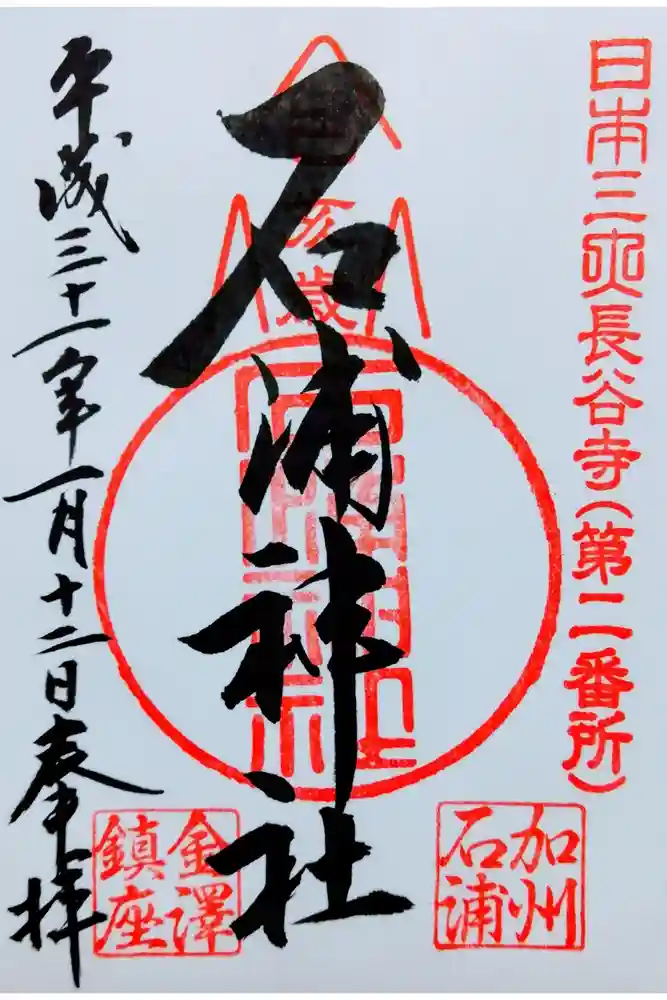 日本三大長谷寺（第二番所）
加州
石浦
石浦神社
亥歳
金澤
鎮座
平成三十一年一月十二日奉拝